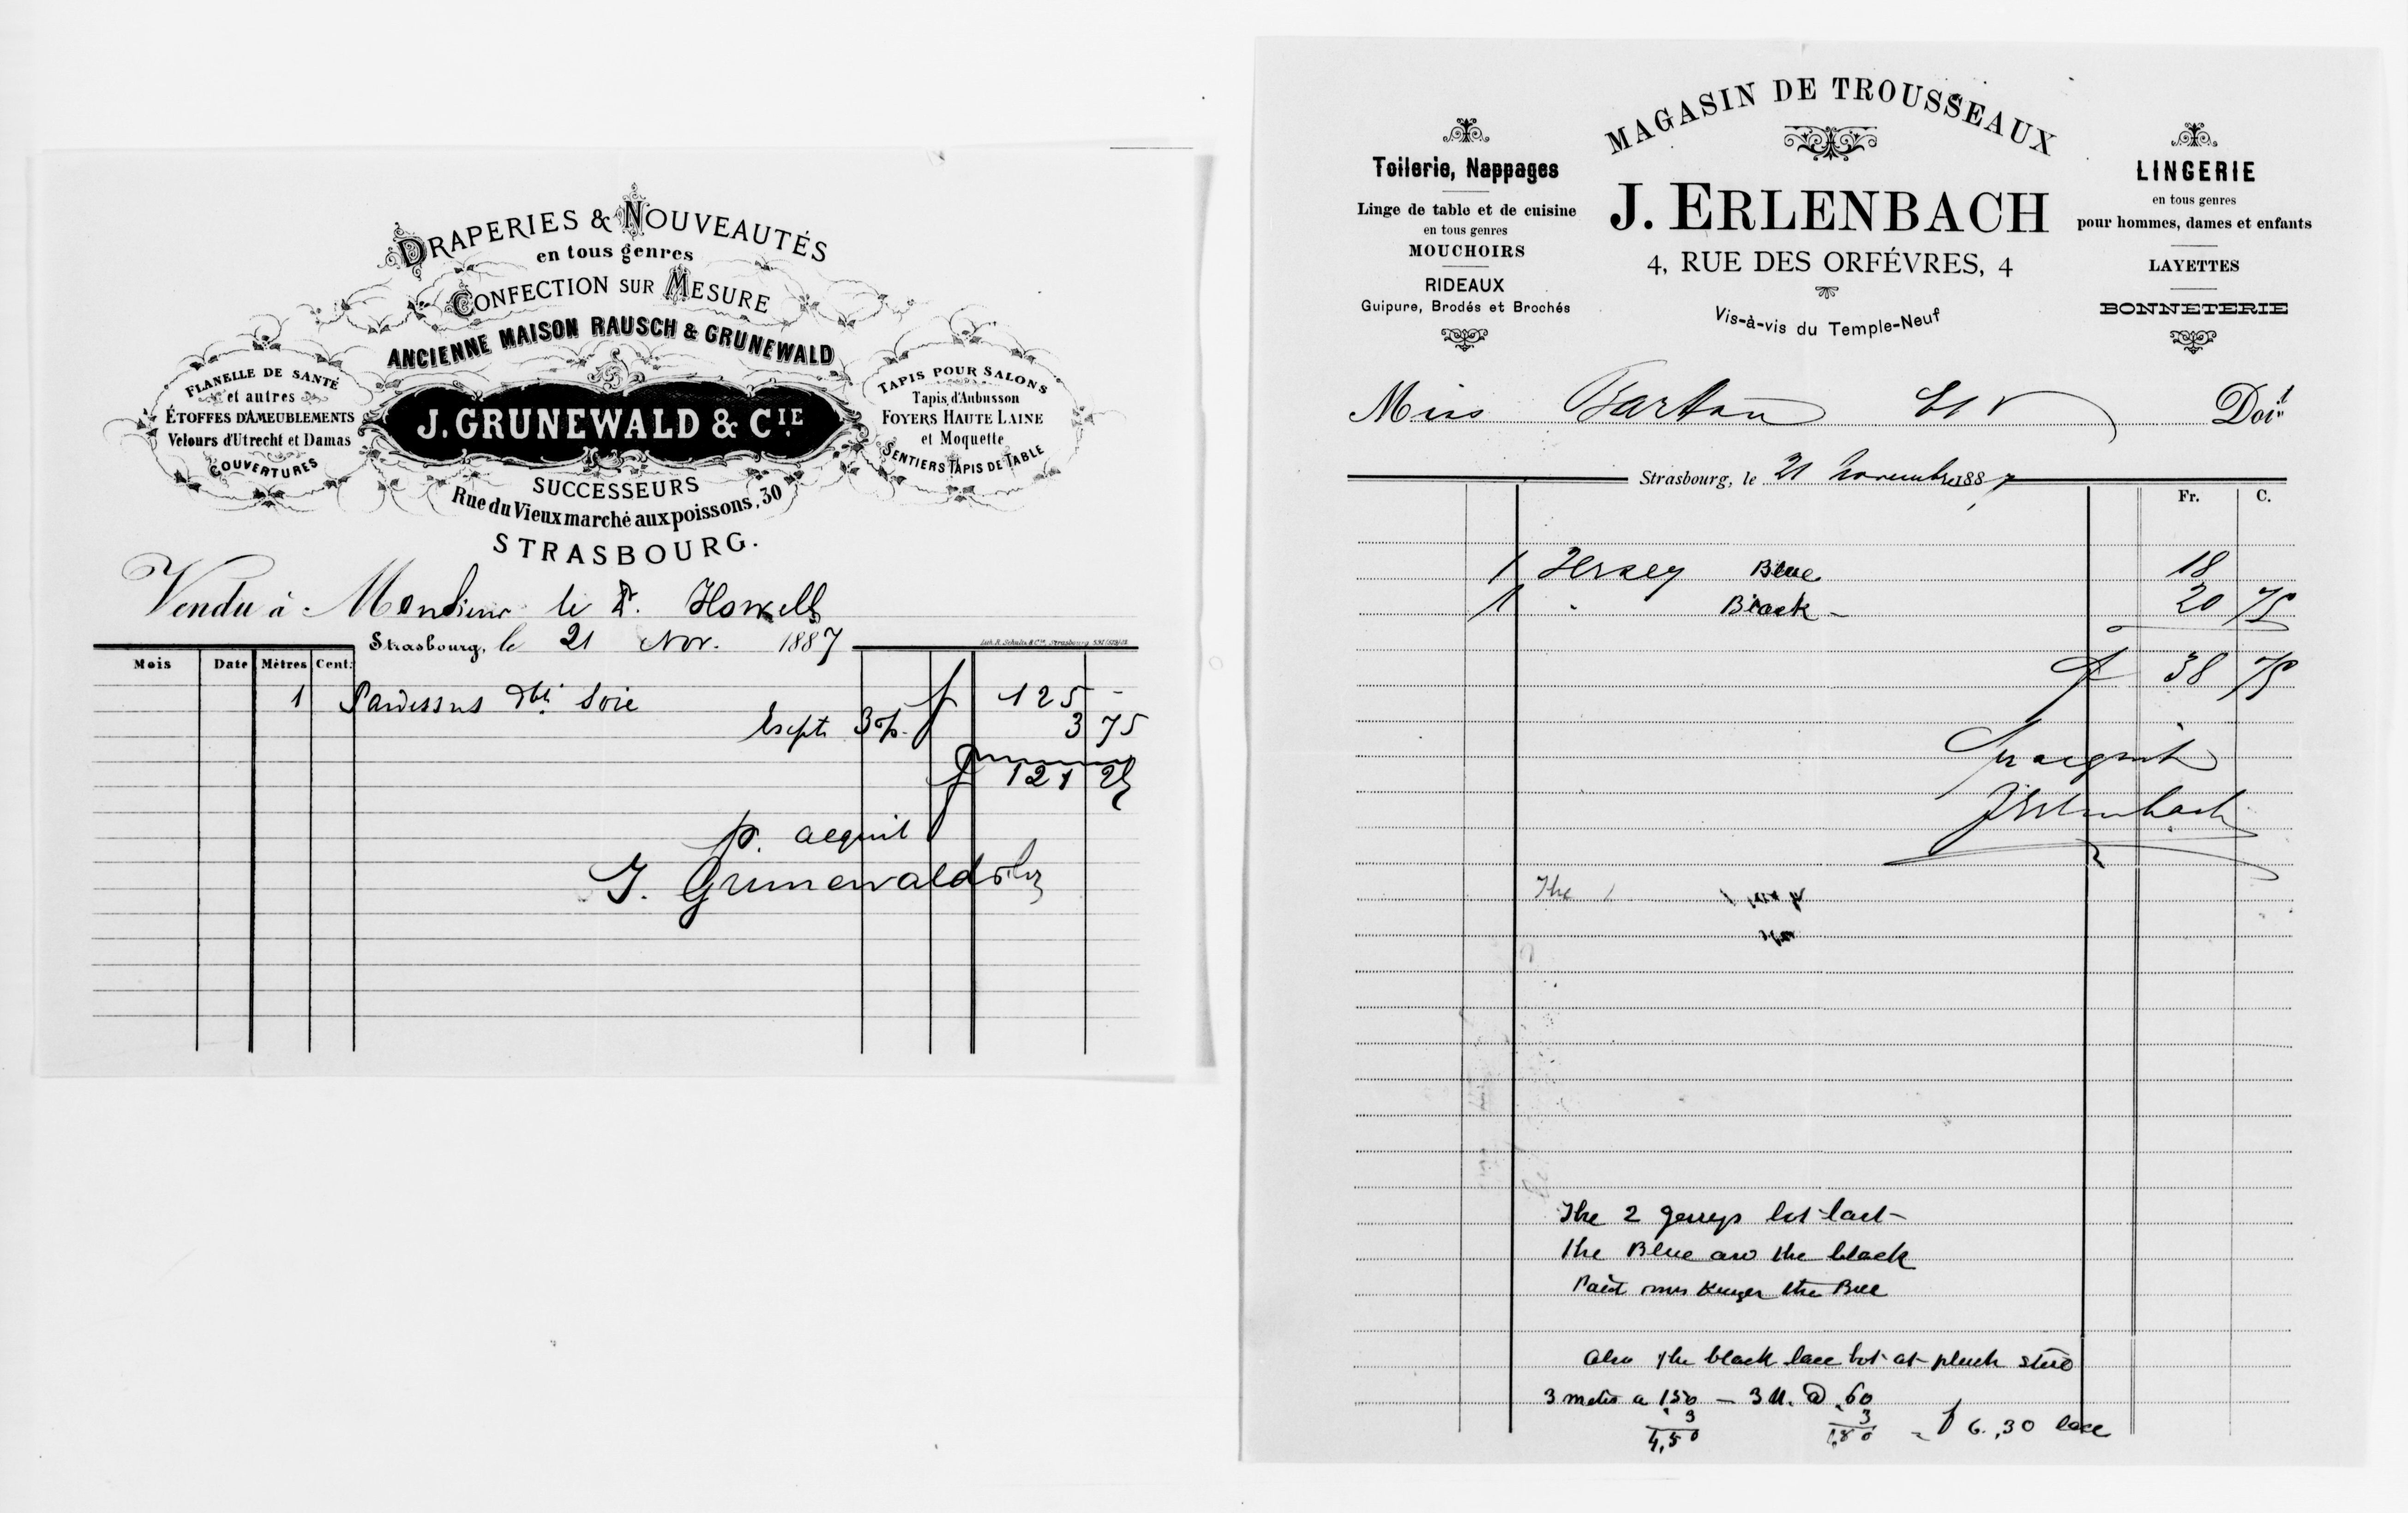 DRAPERIES & NOUVEAUTÉS
en tous genres
CONFECTION SUR MESURE
ANCIENNE MAISON RAUSCH & GRUNEWALD
J. GRUNEWALD & CIE
SUCCESSEURS
Rue du Vieux marché aux poissons, 30
STRASBOURG.
FLANELLE DE SANTÉ
et autres
ÉTOFFES D'AMEUBLEMENTS
Velours d'Utrecht et Damas
COUVERTURES
TAPIS POUR SALONS
Tapis d'Aubusson
FOYERS HAUTE LAINE
et Moquette
SENTIERS TAPIS DE TABLE
Vendu à Monsieur le Dr. Howells
Strasbourg, le 21 Nov. 1887
Mois Date Mètres Cent.
1 Pardessus soie f 125 -
3 % 3 75
f 121 25
p. acquit
J. Grunewald & Cie
MAGASIN DE TROUSSEAUX
J. ERLENBACH
4, RUE DES ORFÉVRES, 4
Vis-à-vis du Temple-Neuf
Toilerie, Nappages
Linge de table et de cuisine
en tous genres
MOUCHOIRS
RIDEAUX
Guipure, Brodés et Brochés
LINGERIE
en tous genres
pour hommes, dames et enfants
LAYETTES
BONNETERIE
Miss Barton Doit
Strasbourg, le 21 novembre 1887
Fr. C.
1 Jersey Blue 18
1 " Black - 20 75
f 38 75
Pr acquit
J Erlenbach
The 1
The 2 jerseys bot last
the Blue and the black
Paid the Bill
Also the black lace bot at plush store
3 metre a 150 - 3 M. @ .60
3 3
4,50 1,80 = f 6.,30 lace